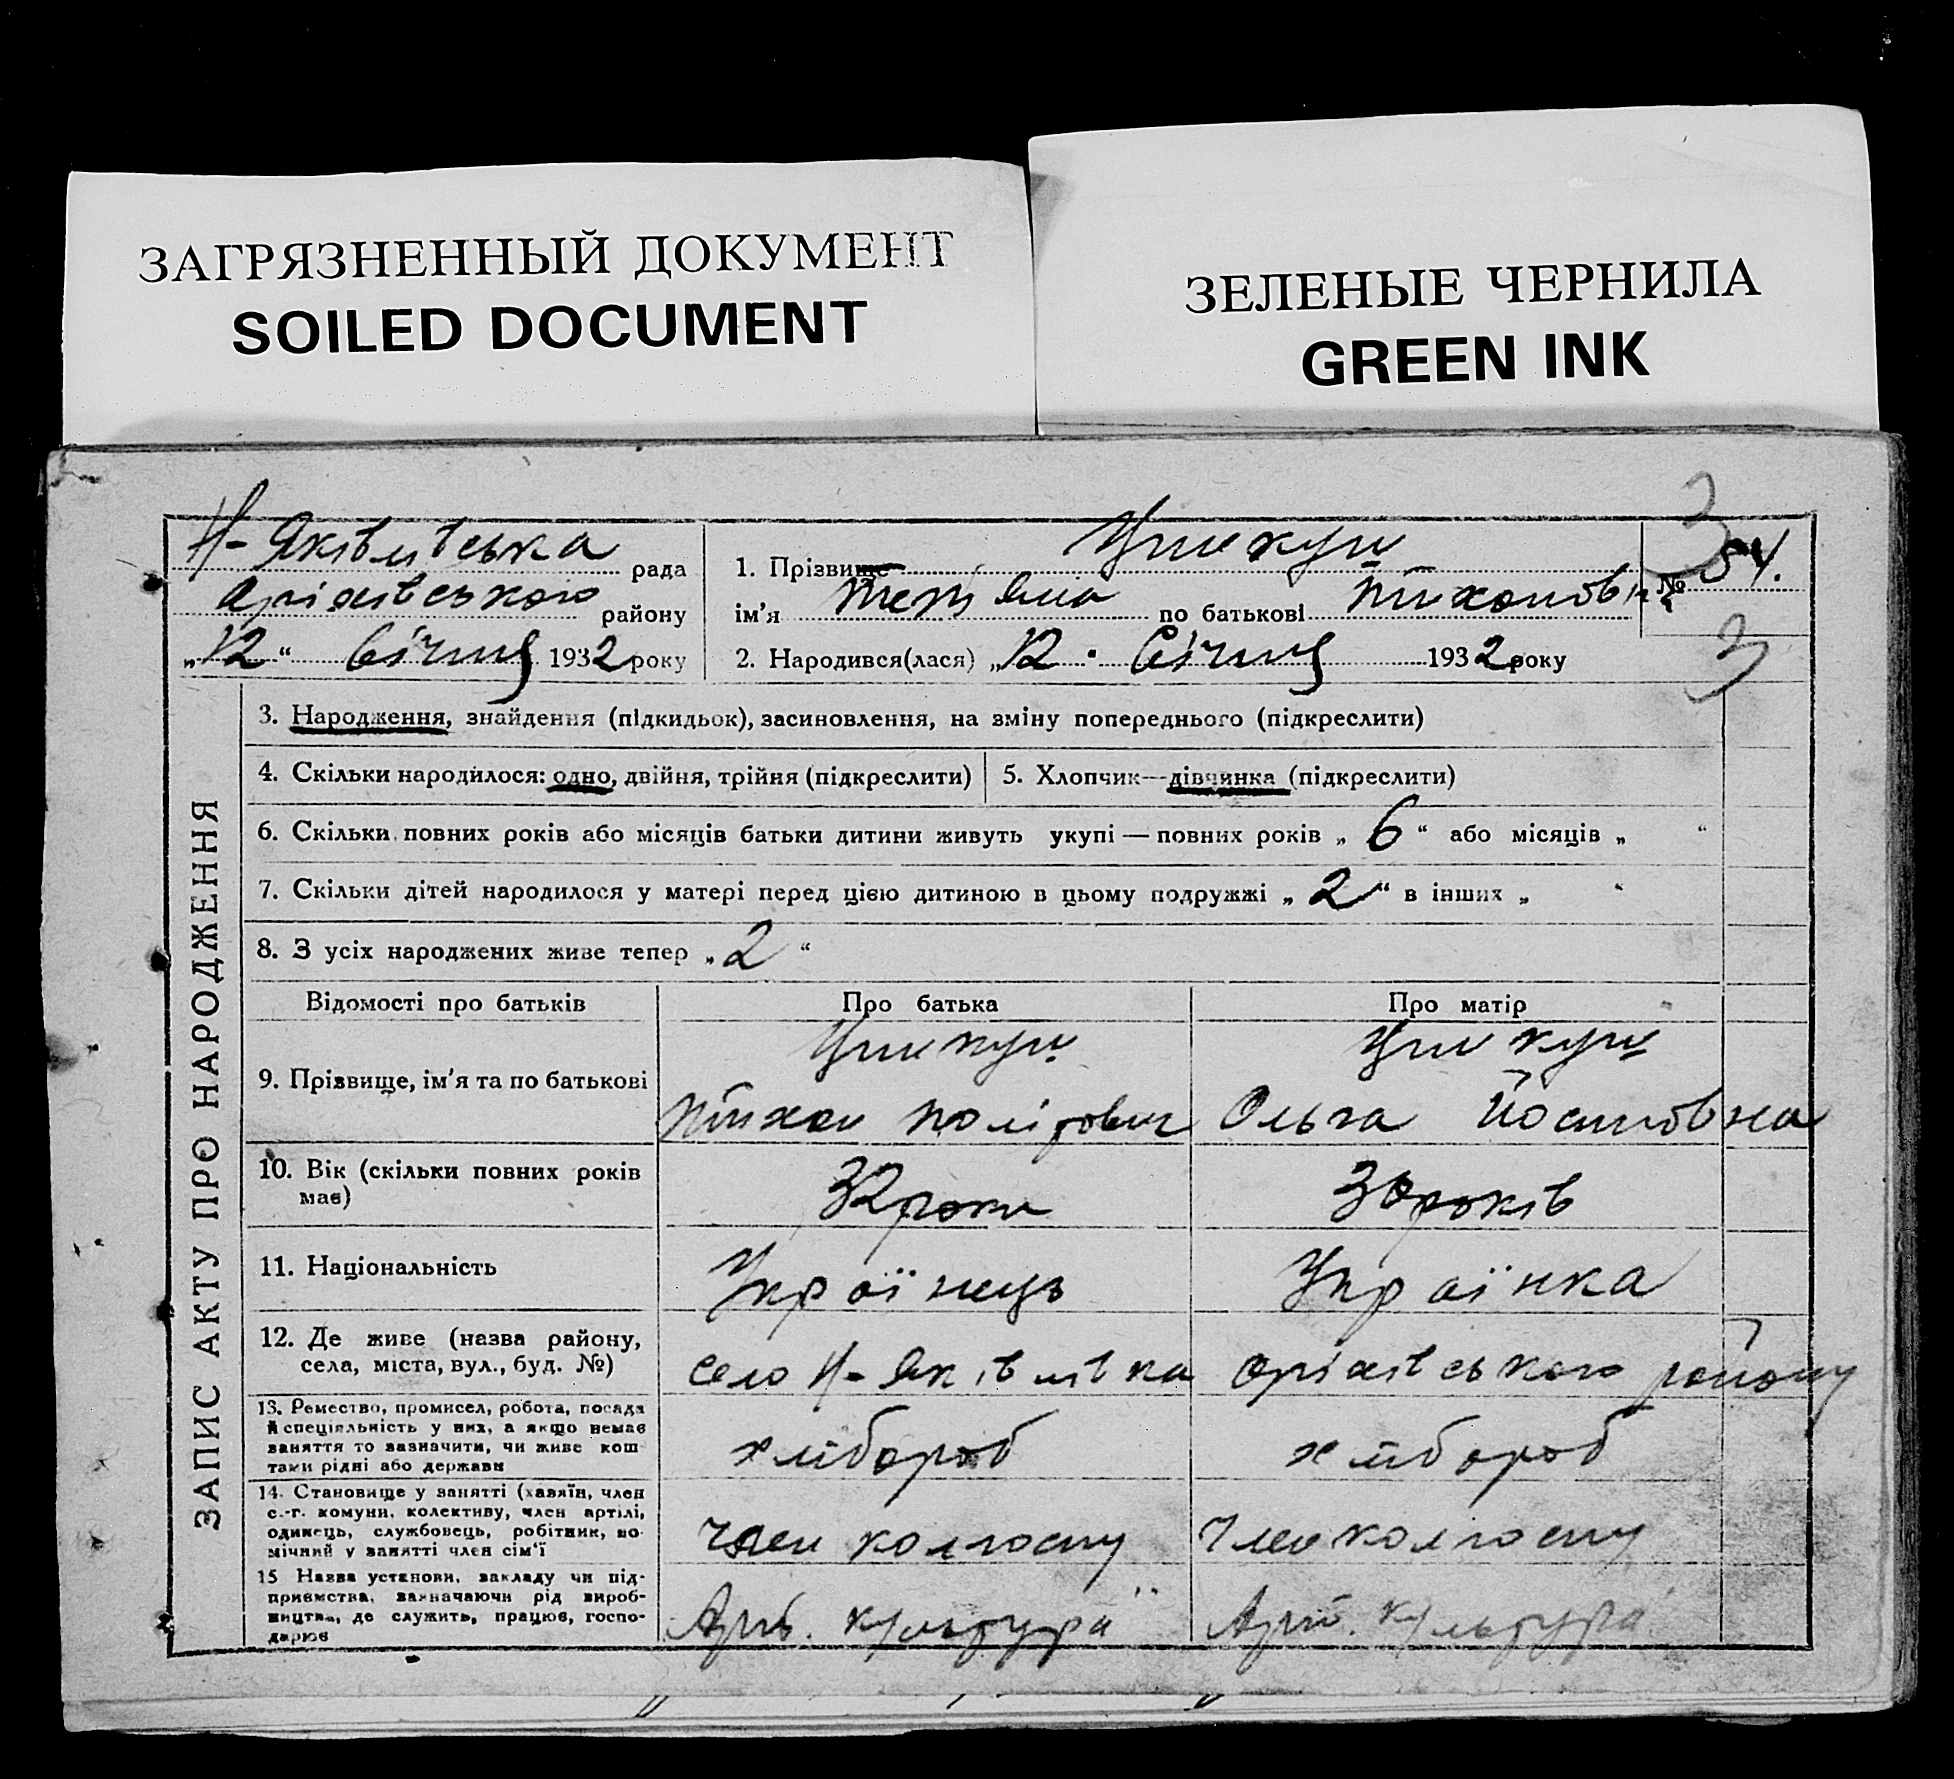 ЗАГРЯЗНЕННЫЙ ДОКУМЕНТ
SOILED DOCUMENT
ЗЕЛЕНЫЕ ЧЕРНИЛА
GREEN INK
Н-Яківлівська рада
району
„12“ Січня 1932 року
1. Прізвище
ім'я по батькові
№ 54.
3
2. Народився(лася) „12. Січня 1932 року
3
ЗАПИС АКТУ ПРО НАРОДЖЕННЯ
3. Народження, знайдення (підкидьок), засиновлення, на зміну попереднього (підкреслити)
4. Скільки народилося: одно, двійня, трійня (підкреслити)
5. Хлопчик—дівчинка (підкреслити)
6. Скільки повних років або місяців батьки дитини живуть укупі — повних років „6“ або місяців „ “
7. Скільки дітей народилося у матері перед цією дитиною в цьому подружжі „2“ в інших „ “
8. З усіх народжених живе тепер „2“
Відомості про батьків Про батька Про матір
9. Прізвище, ім'я та по батькові
Тихон Ольга Йосиповна
10. Вік (скільки повних років
має)
32 роки 30 років
11. Національність Українець Українка
12. Де живе (назва району,
села, міста, вул., буд. №)
село Н-Яківлівка району
13. Ремество, промисел, робота, посада
й спеціяльність у них, а якщо немає
заняття то зазначити, чи живе кош-
тами рідні або держави
хлібороб хлібороб
14. Становище у занятті (хазяїн, член
с.-г. комуни, колективу, член артілі,
одинець, службовець, робітник, по-
мічний у занятті член сім'ї
член колгоспу член колгоспу
15 Назва установи, закладу чи під-
приємства, зазначаючи рід вироб-
ництва, де служить, працює, госпо-
дарює
Арт. культура" Арт. культура